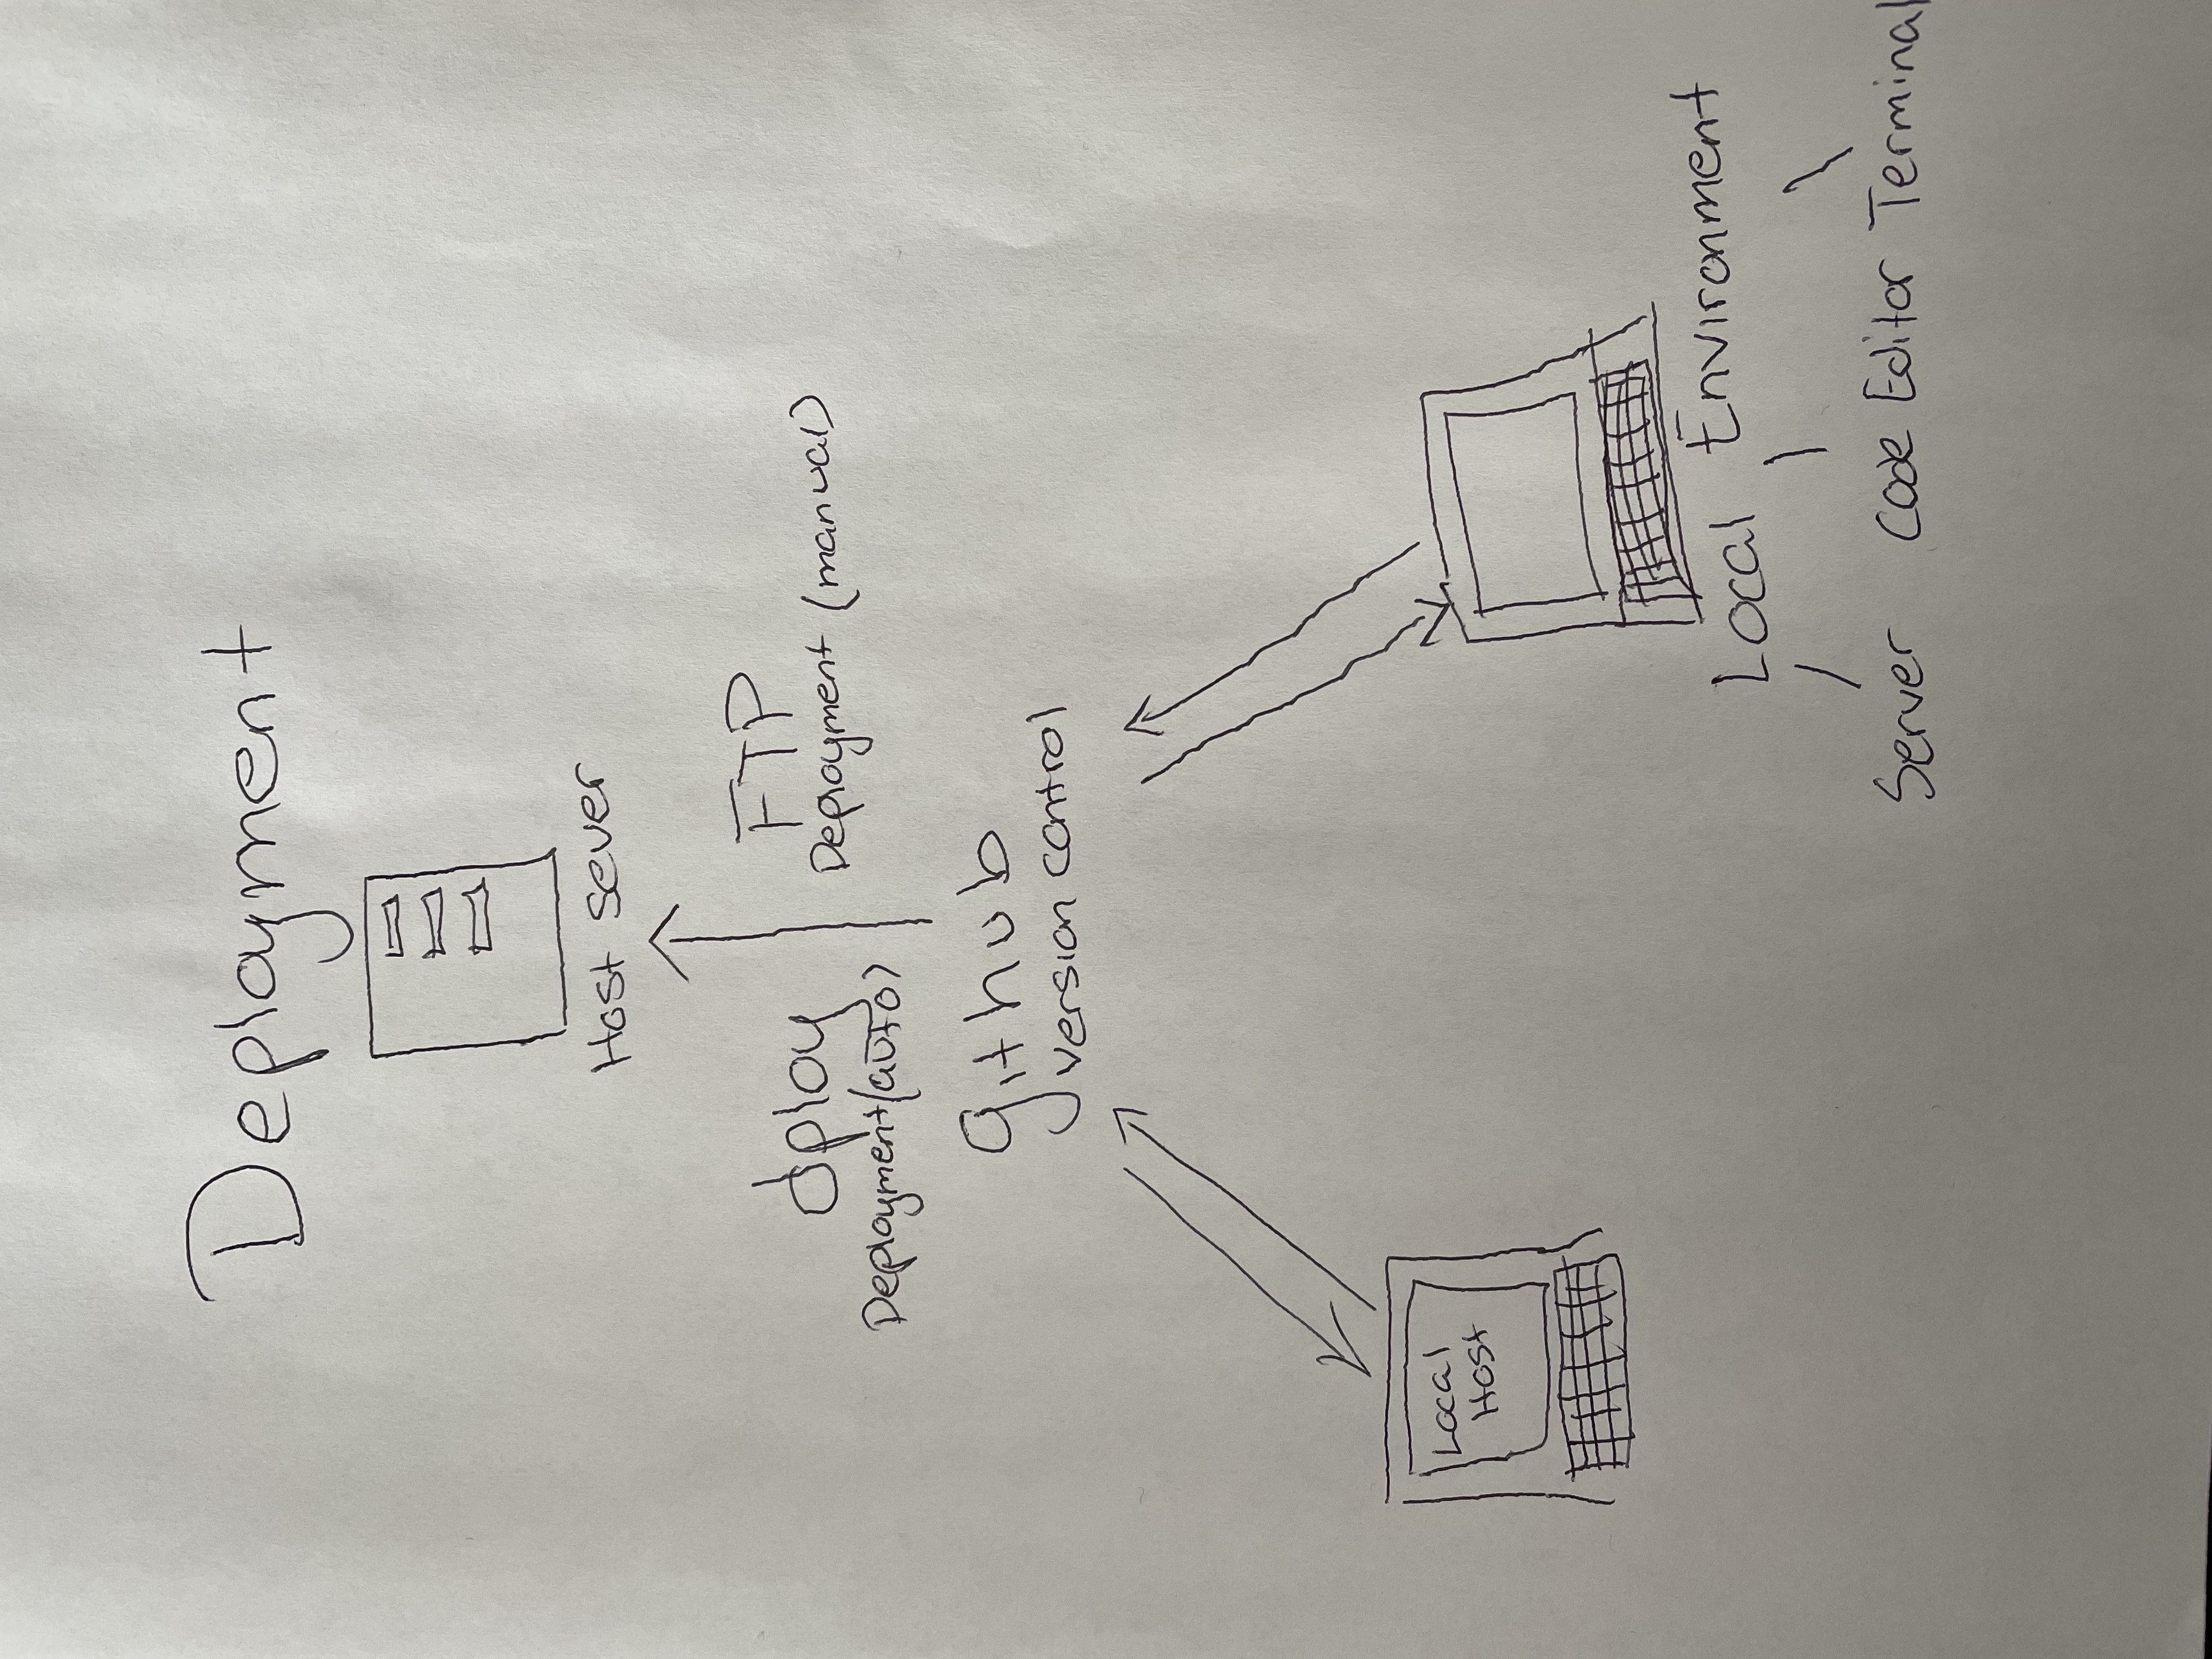 Deployment
Host sever
dploy
Deployment (auto)
FTP
Deployment (manual)
github
version control
Local
Host
Local Environment
Server Code Editor Terminal